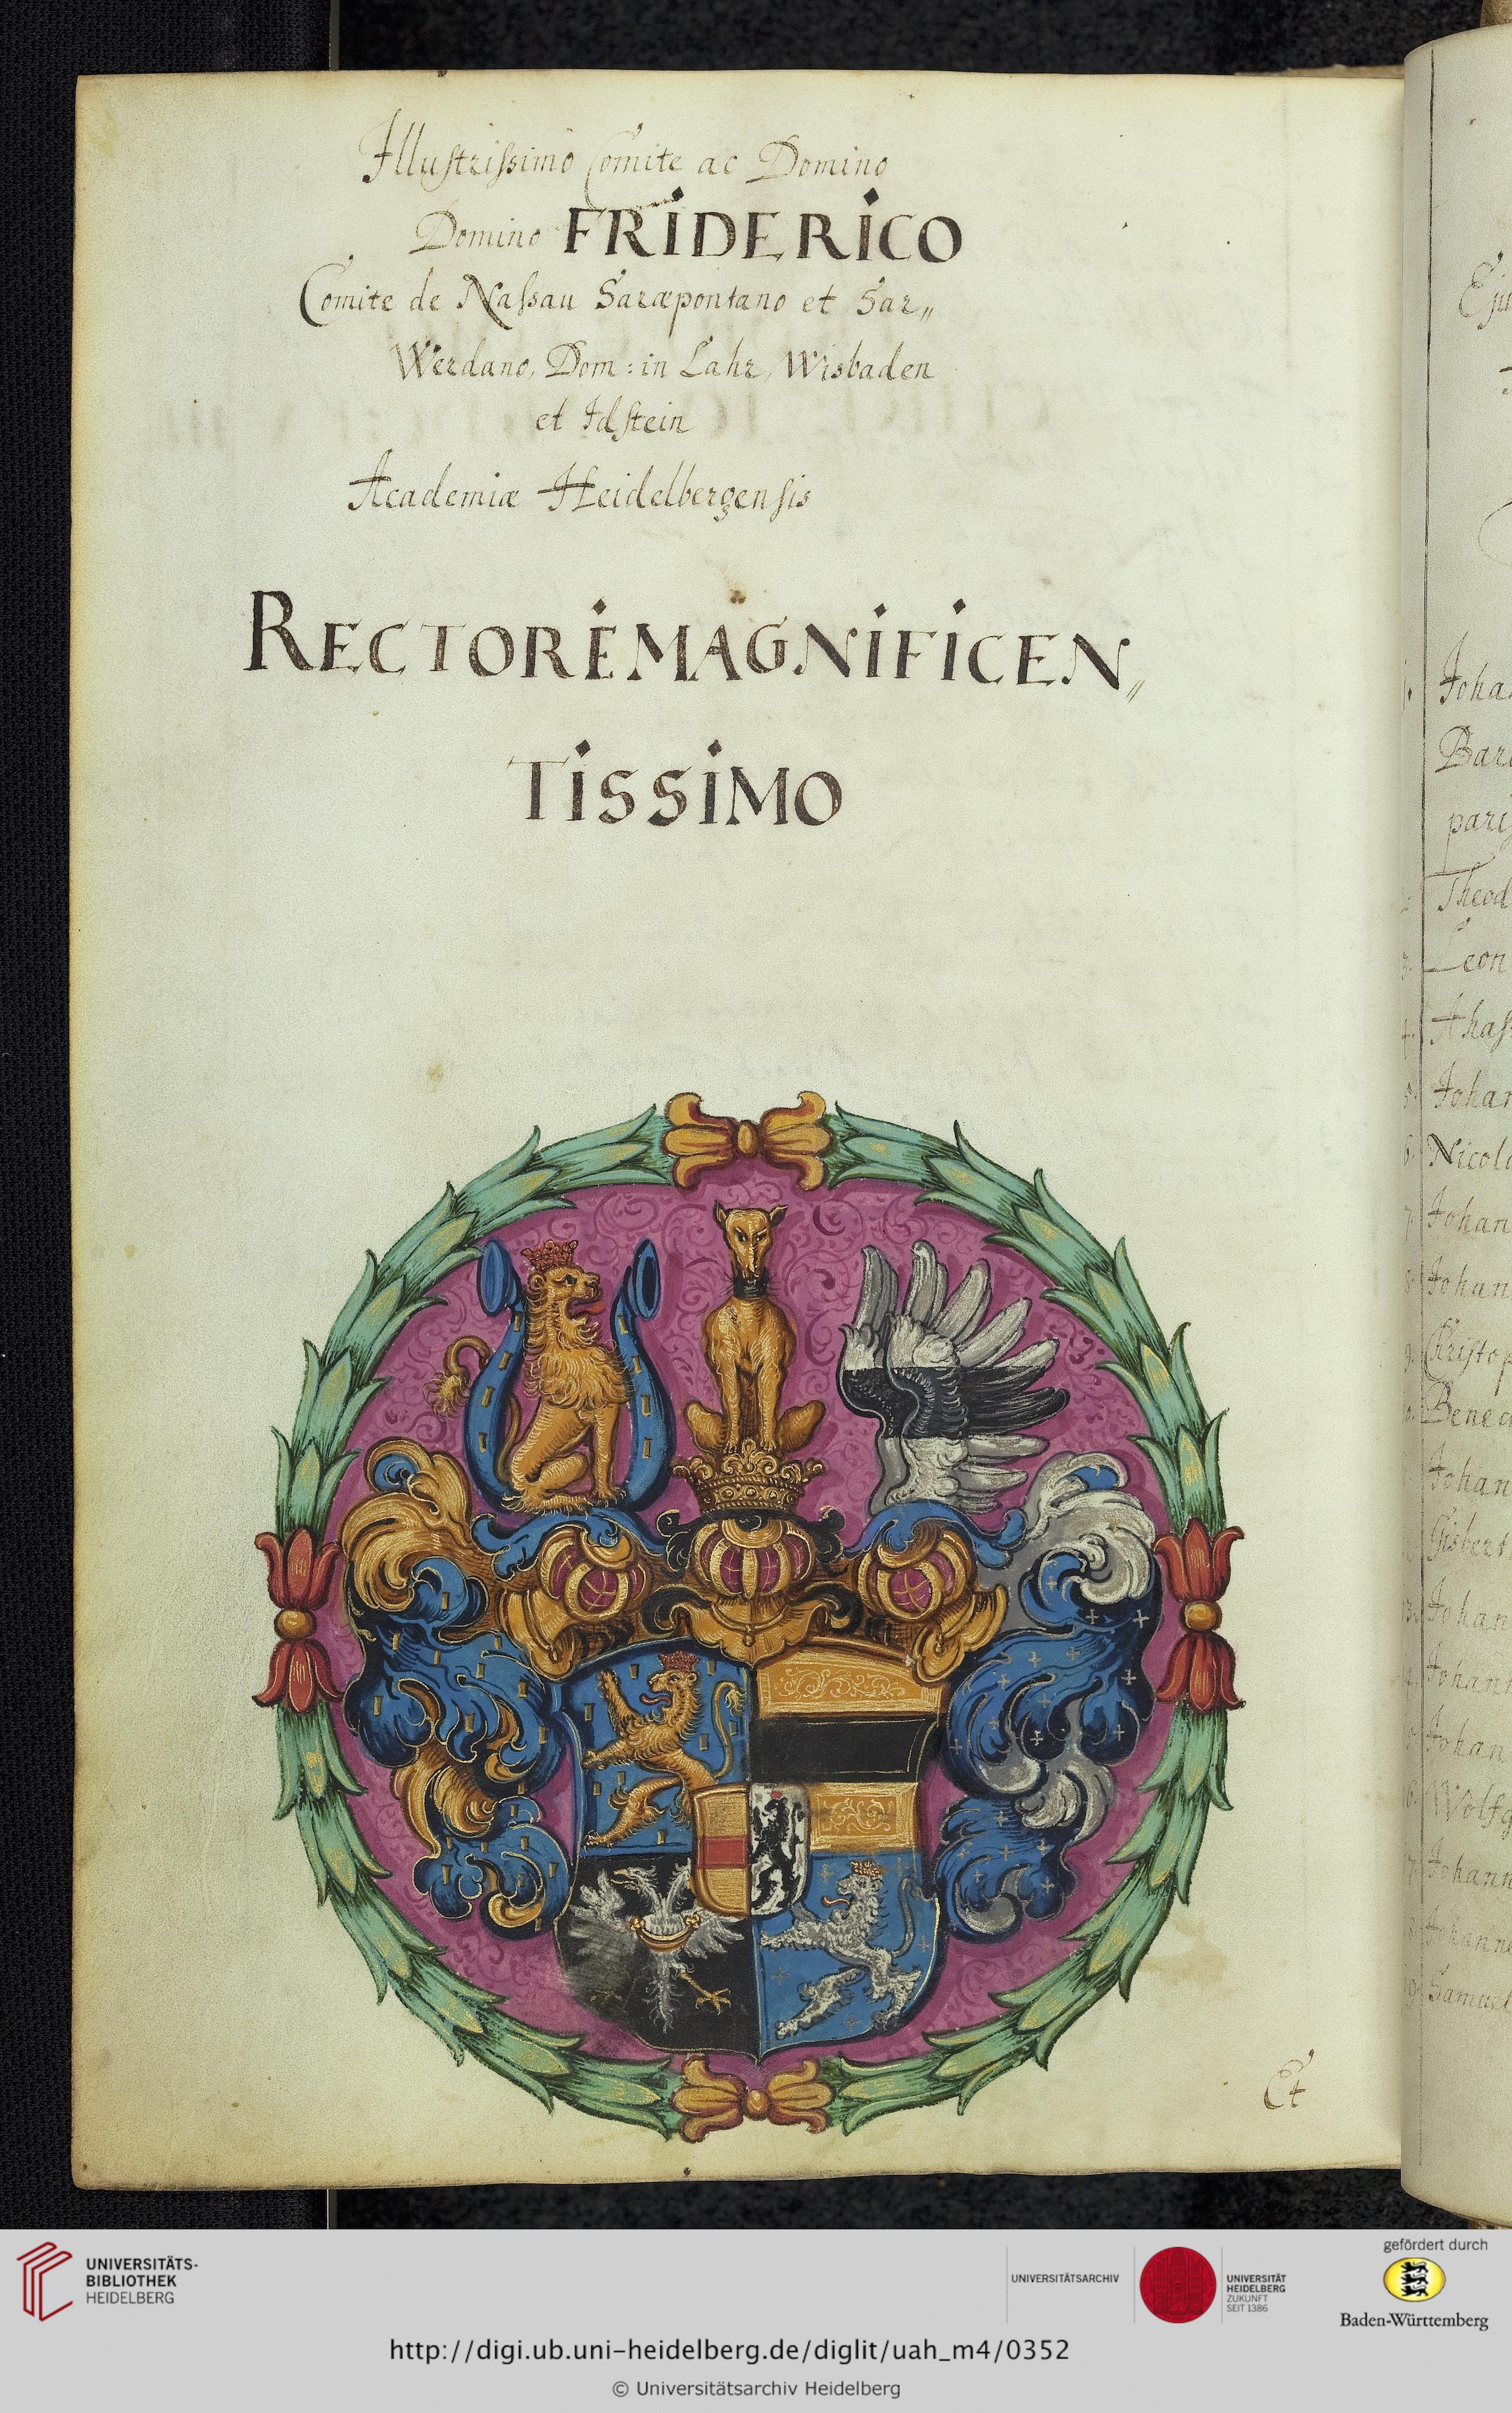 Illustrissimo Comite ac Domino
Domino FRIDERICO
Comite de Nassau Saræpontano et Sar„
Werdano, Dom: in Lahr, Wisbaden
et Idstein
Academiæ Heidelbergensis
RECTORE MAGNIFICEN„
TISSIMO
Et
Joha
Bar
Theod
Leon
Johan
Nicol
Johan
Johan
Christop
Bened
Johan
Gisbert
Johan
Johann
Johan
Wolfg
Johann
Johann
Samuel
UNIVERSITÄTS-
BIBLIOTHEK
HEIDELBERG
UNIVERSITÄTSARCHIV
UNIVERSITÄT
HEIDELBERG
ZUKUNFT
SEIT 1386
gefördert durch
Baden-Württemberg
http://digi.ub.uni-heidelberg.de/diglit/uah_m4/0352
© Universitätsarchiv Heidelberg